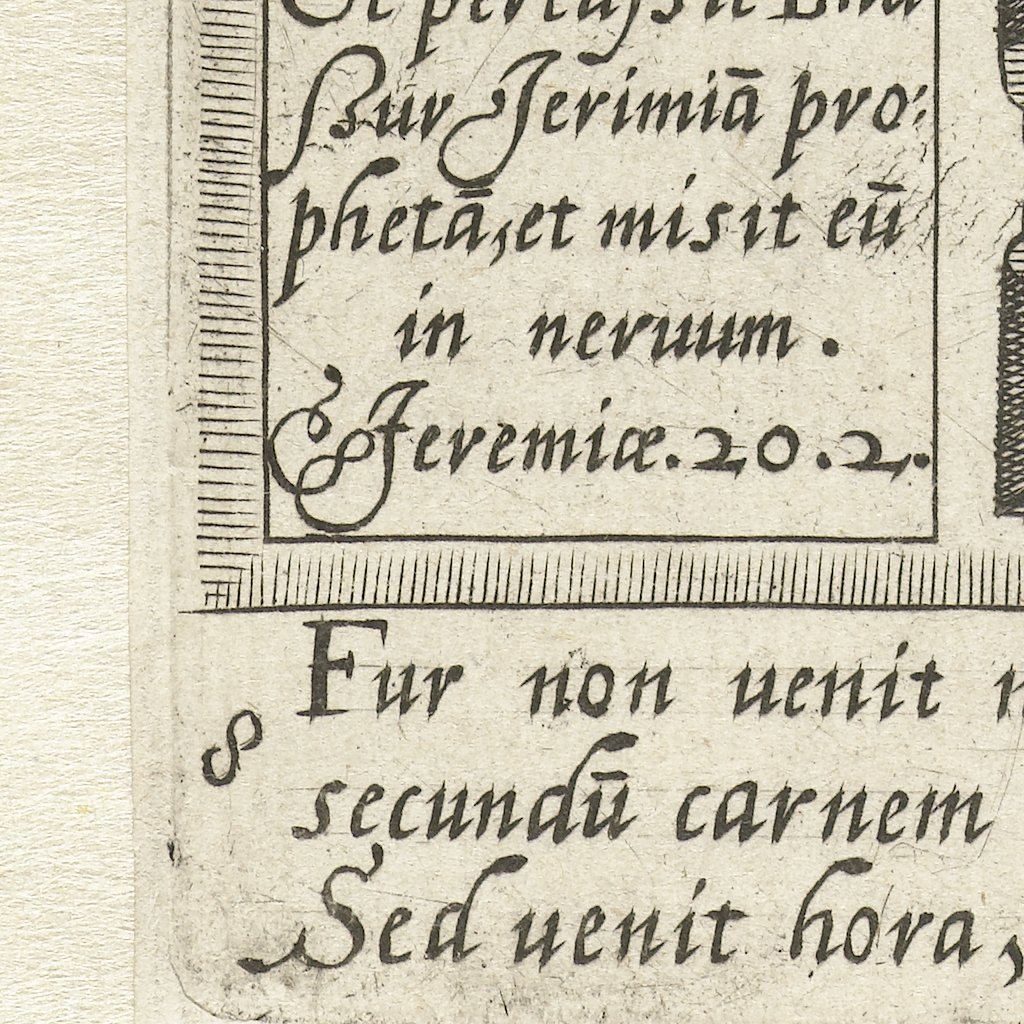 Et percussit Pha
ßur Jerimiā pro:
phetā, et misit eū
in neruum.
Jeremiæ. 20. 2.
Fur non uenit
8
secundū carnem
Sed uenit hora,